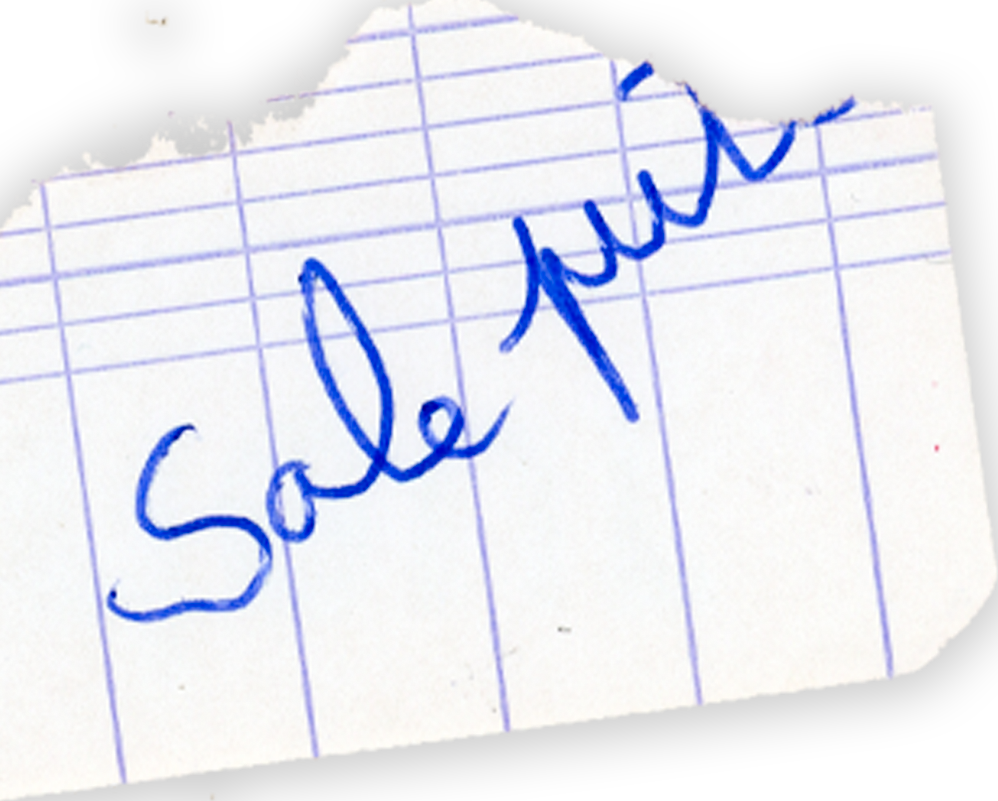 Sale pute